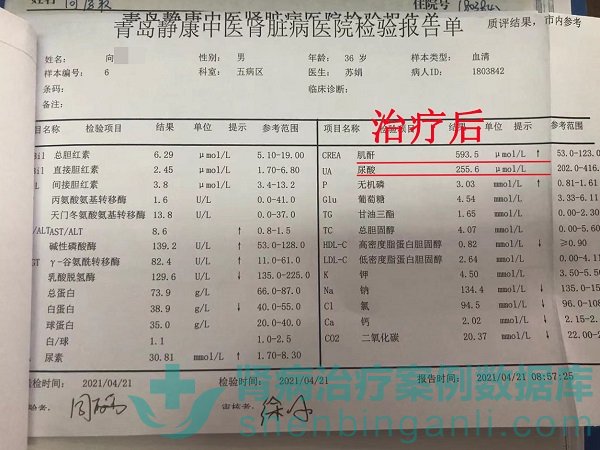 质评结果，市内参考
青岛静康中医肾脏病医院检验报告单
姓名： 向 性别： 男 年龄： 36 岁 样本类型： 血清
样本编号： 6 科室： 五病区 医生： 苏娟 病人ID： 1803842
条码： 临床诊断：
备注：
治疗后
项目名称 检验项目 结果 单位 提示 参考范围
总胆红素 6.29 μmol/L 5.10-19.00
直接胆红素 2.45 μmol/L 1.70-6.80
间接胆红素 3.8 μmol/L 3.4-13.2
丙氨酸氨基转移酶 1.6 U/L 0.0-41.0
天门冬氨酸氨基转移酶 13.8 U/L 0.0-37.0
AST/ALT 8.6 ↑ 0.8-1.5
碱性磷酸酶 139.2 U/L ↑ 53.0-128.0
γ-谷氨酰转移酶 82.4 U/L ↑ 11.0-61.0
乳酸脱氢酶 129.6 U/L ↓ 135.0-225.0
总蛋白 73.9 g/L 66.0-87.0
白蛋白 38.9 g/L ↓ 40.0-55.0
球蛋白 35.0 g/L 20.0-40.0
白/球 1.1 ↓ 1.2-2.5
尿素 30.81 mmol/L ↑ 1.70-8.30
项目名称 检验项目 结果 单位 提示 参考范围
CREA 肌酐 593.5 μmol/L ↑ 53.0-123.0
UA 尿酸 255.6 μmol/L 202.0-416.
P 无机磷 3.03 mmol/L ↑ 0.81-1.61
Glu 葡萄糖 4.54 mmol/L 3.33-6.11
TG 甘油三酯 1.65 mmol/L 0.00-2.30
TC 总胆固醇 4.07 mmol/L
HDL-C 高密度脂蛋白胆固醇 0.82 mmol/L ↓ ≥0.90
LDL-C 低密度脂蛋白胆固醇 2.64 mmol/L
K 钾 4.50 mmol/L
Na 钠 134.4 mmol/L ↓
Cl 氯 94.5 mmol/L ↓ 96.0-108
Ca 钙 2.02 mmol/L ↓ 2.15-2.
CO2 二氧化碳 20.37 mmol/L ↓ 22.00-2
检时间： 2021/04/21 检验时间： 2021/04/21 报告时间： 2021/04/21 08:57:25
验者： 审核者：
肾病治疗案例数据库
shenbinganli.com